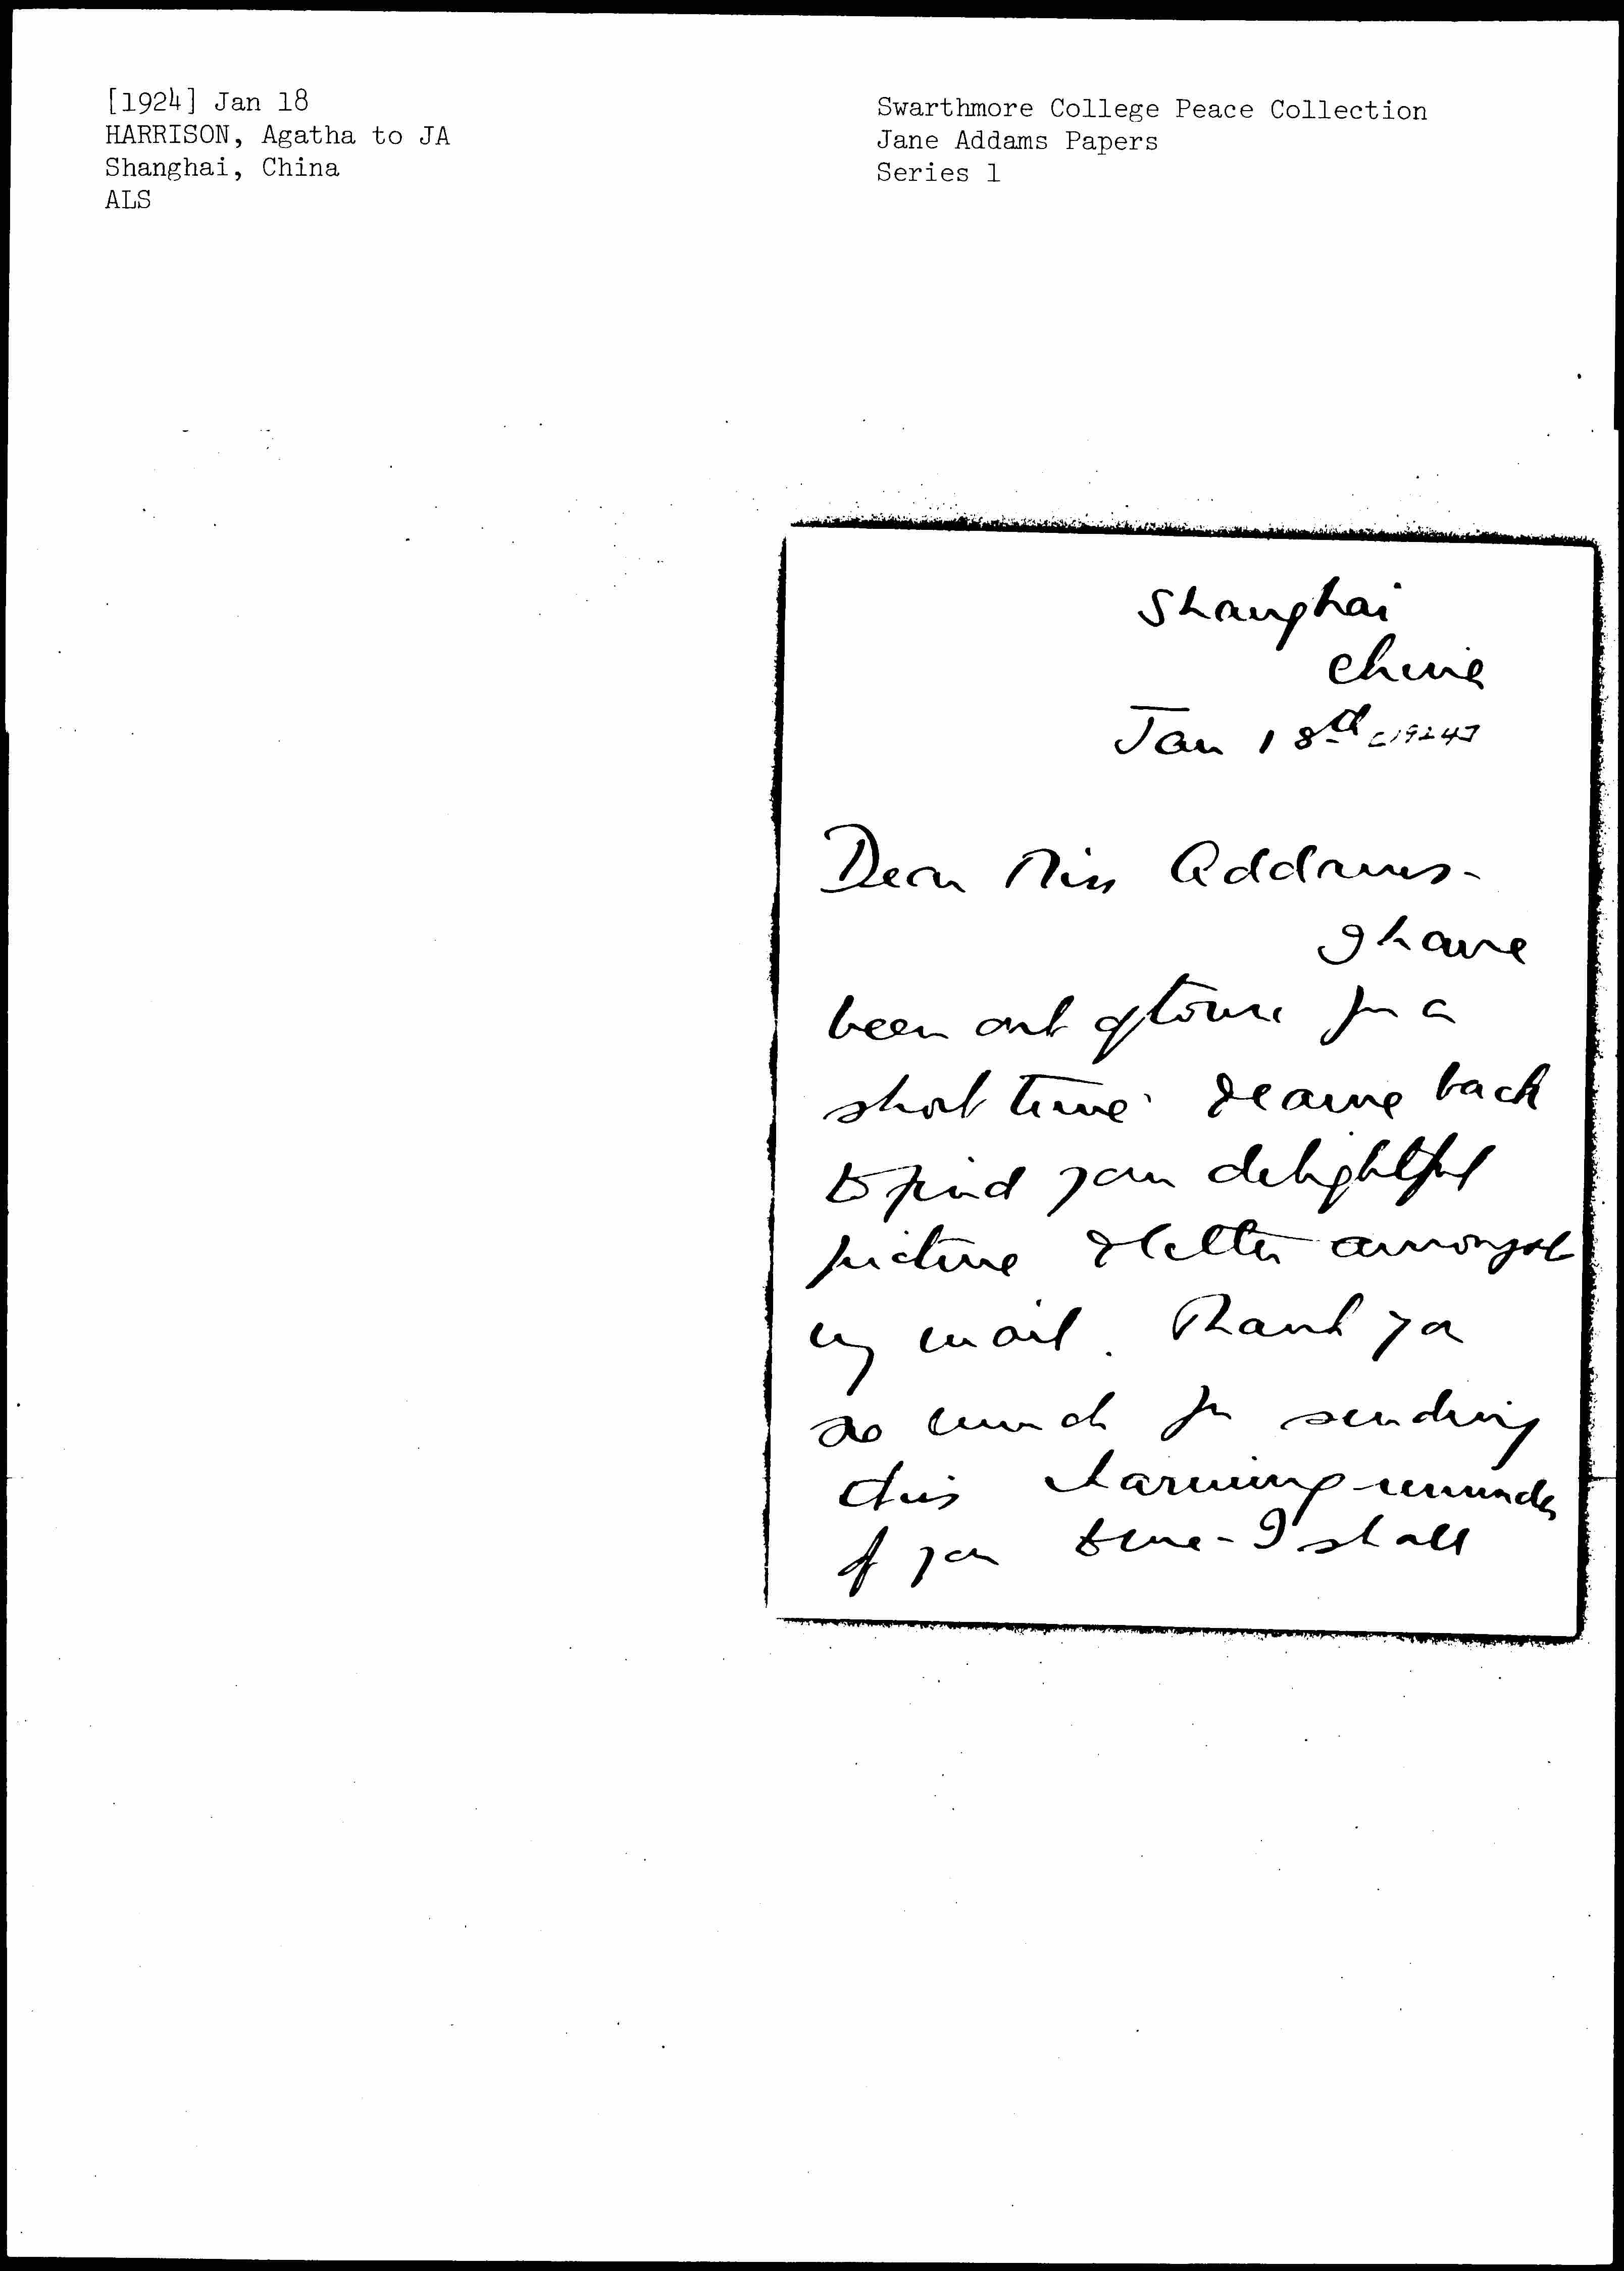 [1924] Jan 18
HARRISON, Agatha to JA
Shanghai, China
ALS
Swarthmore College Peace Collection
Jane Addams Papers
Series 1
Shanghai
China
Jan 18th [1924]
Dear Miss Addams-
I have
been out of town for a
short time & came back
to find your delightful
picture & letter amongst
my mail. Thank you
so much for sending
this charming reminder
of your time - I shall